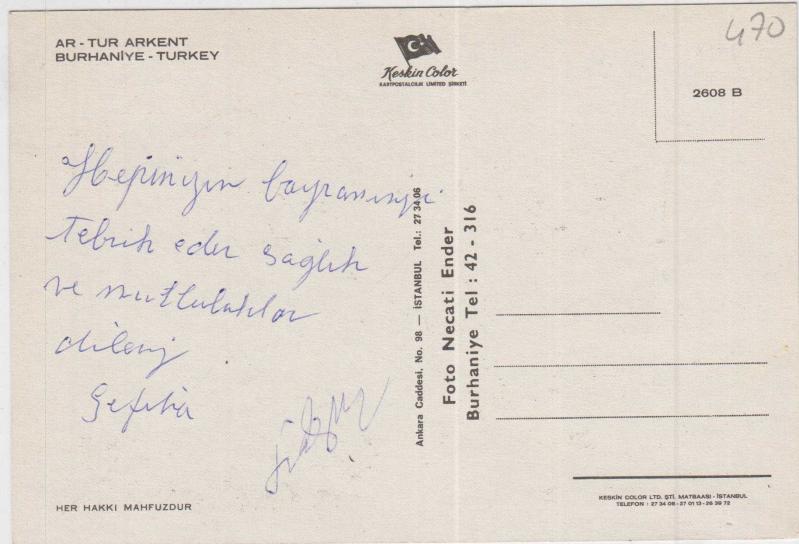 AR - TUR ARKENT
BURHANİYE - TURKEY
Keskin Color
KARTPOSTALCILIK LIMITED ŞİRKETİ
470
2608 B
Hepinizin bayramınızı
tebrik eder sağlık
ve mutluluklar
dileriz
Ankara Caddesi, No. 98 — İSTANBUL Tel.: 27 34 06
Foto Necati Ender
Burhaniye Tel : 42 - 316
HER HAKKI MAHFUZDUR
KESKIN COLOR LTD. ŞTİ. MATBAASI - İSTANBUL
TELEFON : 27 34 06 - 27 01 13 - 26 39 72